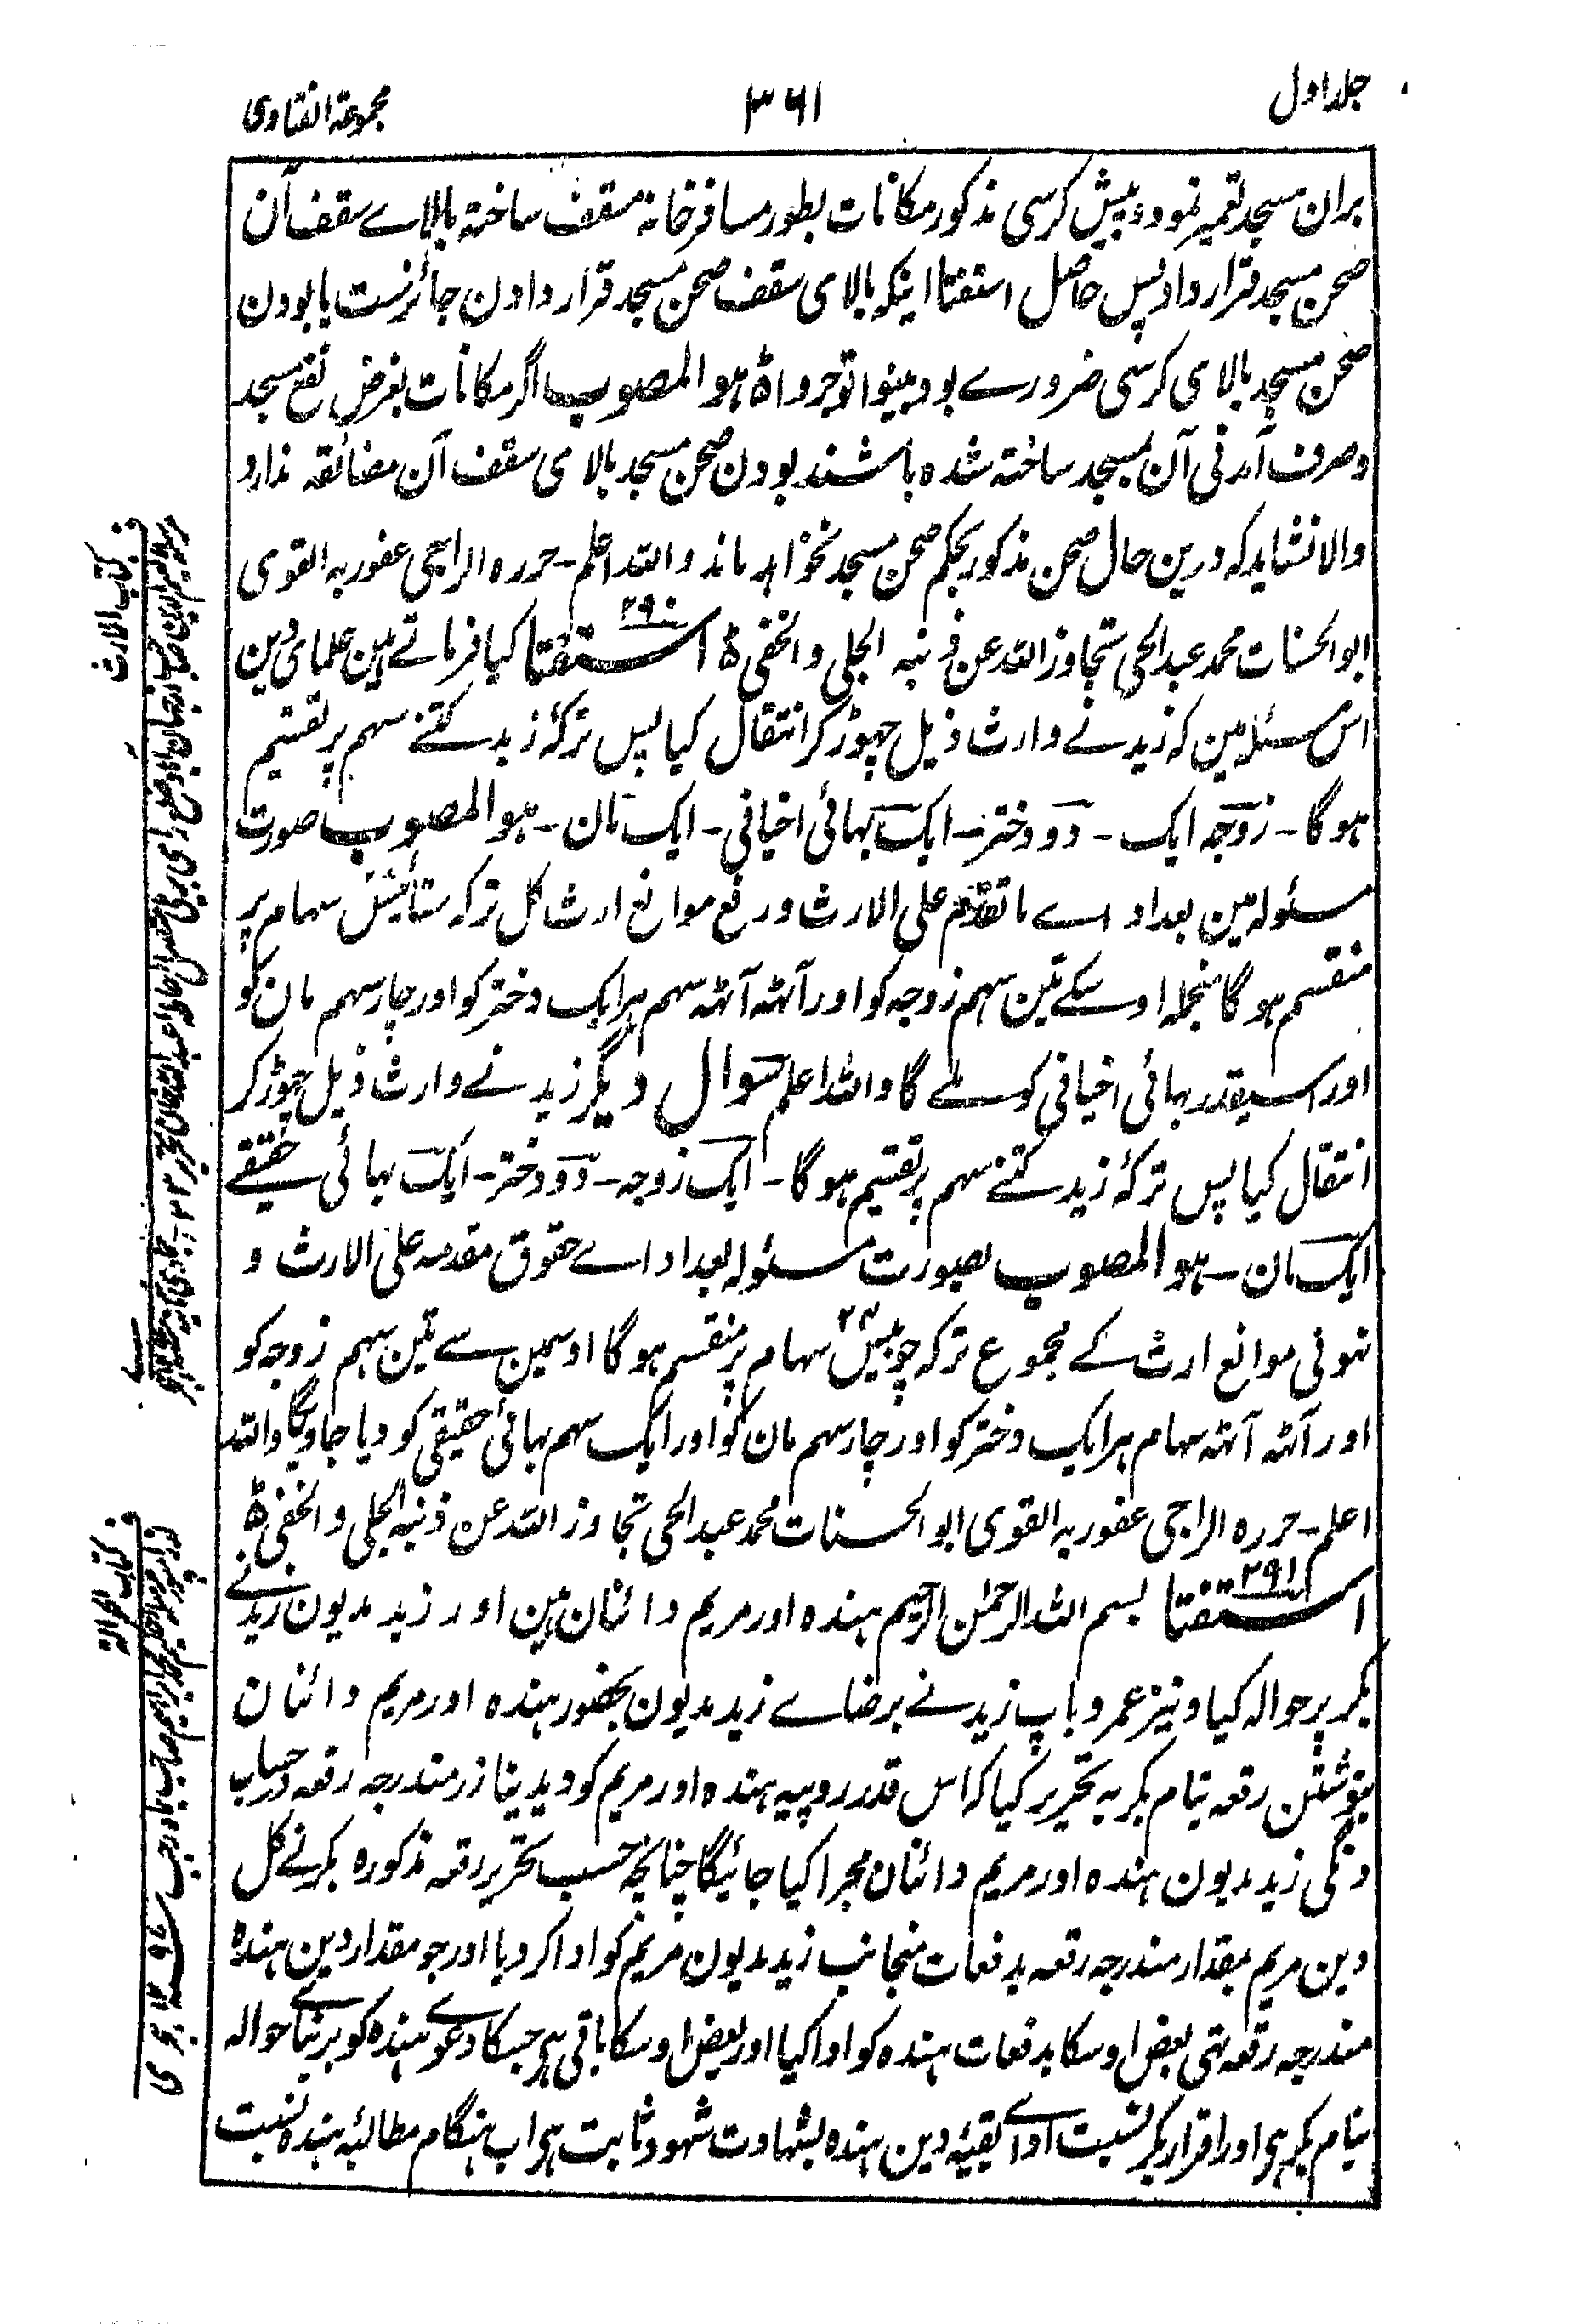 جلد اول
۳۶۱
مجموعۃ الفتاوی
بران مسجد تعمیر نمود و پیش کرسی مذکور مکانات بطور مسافر خانہ مسقف ساختہ بالاے سقف آن
صحن مسجد قرار داد پس حاصل استفتا اینکہ بالای سقف صحن مسجد قرار دادن جائزست یا بودن
صحن مسجد بالای کرسی ضرورے بود بینوا توجروا ہو المصوب اگر مکانات بغرض نفع مسجد
و صرف آمدنی آن بمسجد ساختہ شدہ باشند بودن صحن مسجد بالای سقف آن مضائقہ ندارد
والا نشاید کہ درین حال صحن مذکور بحکم صحن مسجد نخواہد ماند واللہ اعلم - حررہ الراجی عفو ربہ القوی
ابو الحسنات محمد عبد الحی تجاوز اللہ عن ذنبہ الجلی والخفی استفتا ۲۹۰ کیا فرماتے ہین علمای دین
اس مسئلہ مین کہ زید نے وارث ذیل چھوڑ کر انتقال کیا پس ترکۂ زید کتنے سہم پر تقسیم
ہوگا - زوجہ ایک - دو دختر - ایک بہائی اخیافی - ایک مان - ہو المصوب صورت
مسئولہ مین بعد اداے ما تقدم علی الارث و رفع موانع ارث کل ترکہ ستائیس سہام پر
منقسم ہوگا منجملہ اوسکے تین سہم زوجہ کو اور آٹہہ آٹہہ سہم ہر ایک دختر کو اور چار سہم مان کو
اور اسیقدر بہائی اخیافی کو ملے گا واللہ اعلم سوال دیگر زید نے وارث ذیل چہوڑ کر
انتقال کیا پس ترکۂ زید کتنے سہم پر تقسیم ہوگا - ایک زوجہ - دو دختر - ایک بہائی حقیقے
ایک مان - ہو المصوب بصورت مسئولہ بعد اداے حقوق مقدمہ علی الارث و
نہوئی موانع ارث کے مجموع ترکہ چوبیس ۲۴ سہام پر منقسم ہوگا اوسمین سے تین سہم زوجہ کو
اور آٹہہ آٹہہ سہام ہر ایک دختر کو اور چار سہم مان کو اور ایک سہم بہائی حقیقی کو دیا جاویگا واللہ
اعلم - حررہ الراجی عفو ربہ القوی ابو الحسنات محمد عبد الحی تجاوز اللہ عن ذنبہ الجلی والخفی
استفتا ۲۹۱ بسم اللہ الرحمن الرحیم ہندہ اور مریم دائنان ہین اور زید مدیون زید نے
بکر پر حوالہ کیا و نیز عمرو باپ زید نے برضاے زید مدیون بحضور ہندہ اور مریم دائنان
بنوشتن رقعہ بنام بکر یہ تحریر کیا کہ اس قدر روپیہ ہندہ اور مریم کو دیدینا زر مندرجہ رقعہ حساب
دنگی زید مدیون ہندہ اور مریم دائنان مجرا کیا جائیگا چنانچہ حسب تحریر رقعہ مذکورہ بکر نے کل
دین مریم بمقدار مندرجہ رقعہ بدفعات منجانب زید مدیون مریم کو ادا کر دیا اور جو مقدار دین ہندہ
مندرجہ رقعہ تہی بعض اوسکا بدفعات ہندہ کو ادا کیا اور بعض اوسکا باقی ہی جسکا دعوے ہندہ کو بر بناے حوالہ
بنام بکر ہی اور اقرار بکر نسبت اداے بقیۂ دین ہندہ بشہادت شہود ثابت ہی اب ہنگام مطالبۂ ہندہ نسبت
کتاب الارث
کتاب الحوالۃ